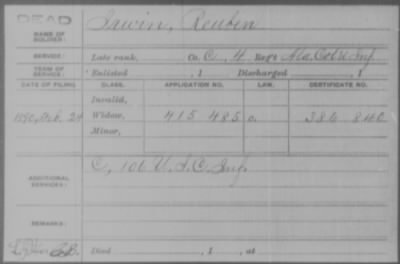 DEAD
NAME OF SOLDIER: Irwin, Reuben
SERVICE: Late rank, Co. C, 4 Reg't Ala Col'd Inf
TERM OF SERVICE: Enlisted , 1 Discharged , 1
DATE OF FILING. CLASS. APPLICATION NO. LAW. CERTIFICATE NO.
Invalid,
1890, Feb. 24 Widow, 415 485 o. 386 840
Minor,
ADDITIONAL SERVICES: C, 106 U.S.C. Inf.
REMARKS:
Died , 1 , at